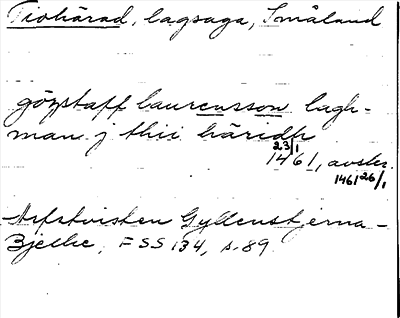 Tiohärad, lagsaga, Småland
götstaff laurensson lagh-
man j thii häridh
23/1
1461, avskr.
1461 26/1
Arfstvisten Gyllenstjerna-
Bjelke, FSS 134, s. 89